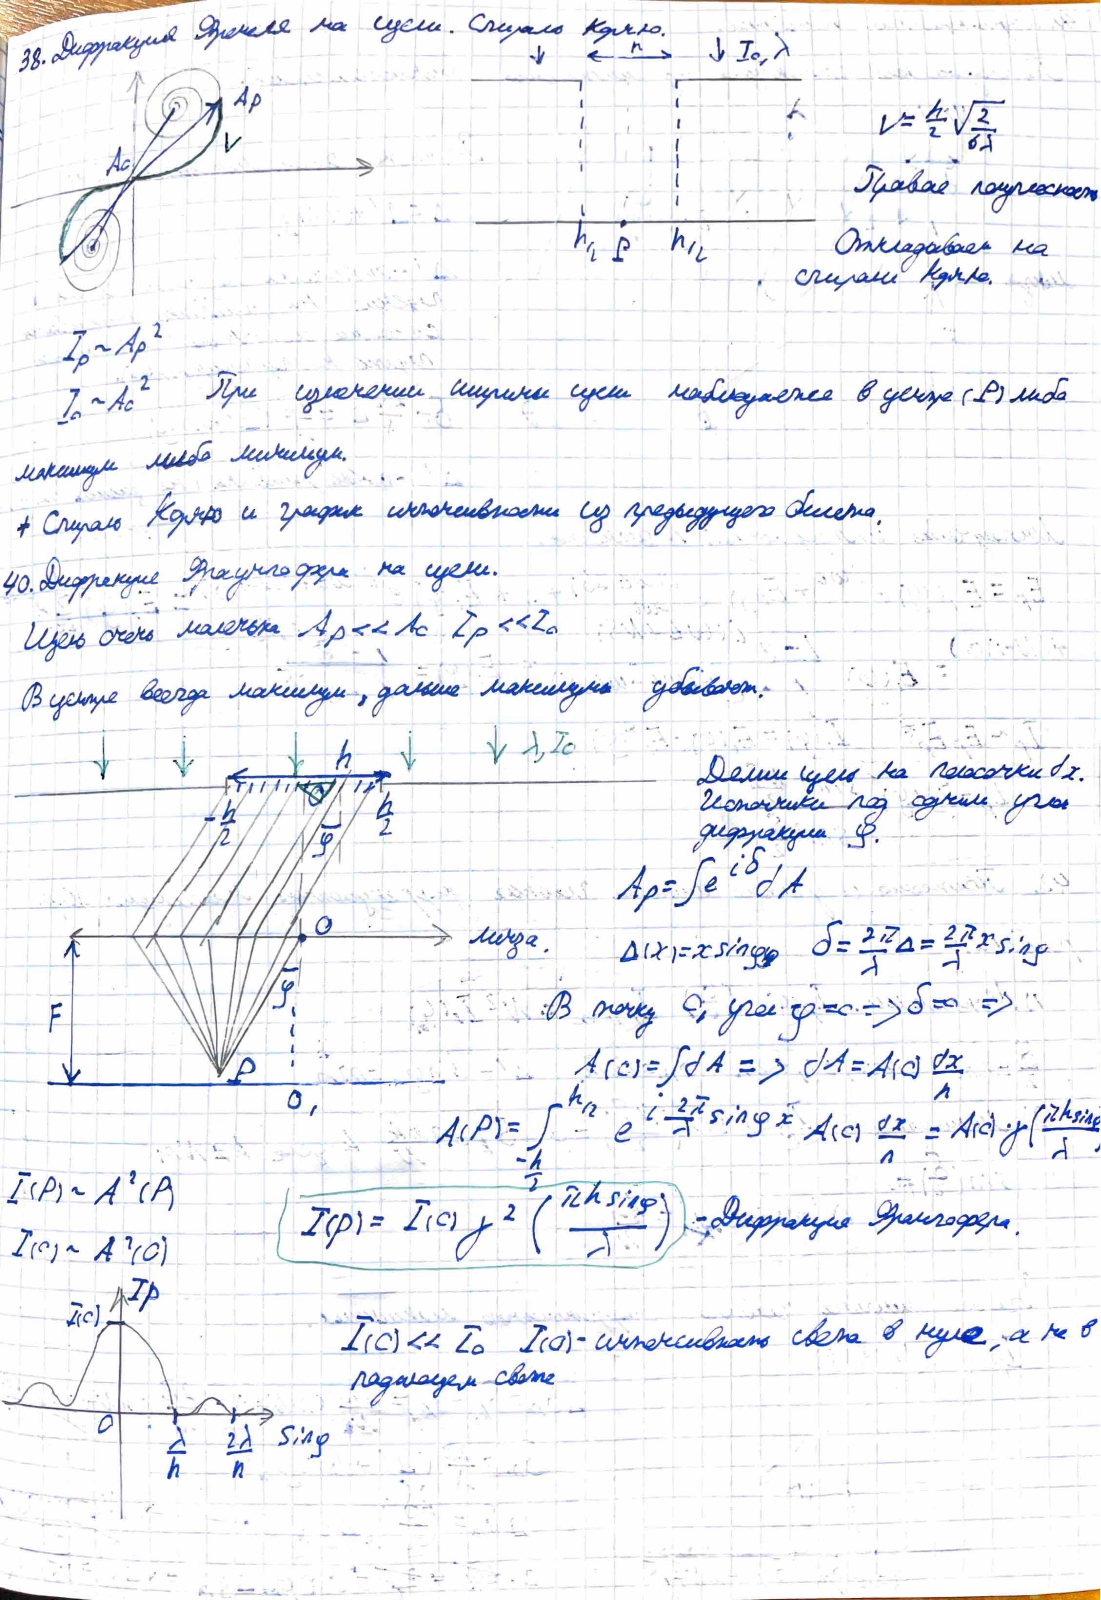 38. Дифракция Френеля на щели. Спираль Корню.
h
I₀, λ
Ap
V
A₀
V = h/2 √(2/(bλ))
Правая полуплоскость
Откладываем на
спирали Корню.
h/2 P h/2
Ip ~ Ap²
I₀ ~ A₀² При изменении ширины щели наблюдаем в центре (P) либо
максимум либо минимум.
+ Спираль Корню и график интенсивности из предыдущего билета.
40. Дифракция Фраунгофера на щели.
Щель очень маленькая Ap << A₀ Ip << I₀
В центре всегда максимум, дальше максимумы убывают.
λ, I₀
h
-h/2 φ h/2
Делим щель на полосочки dx.
Источники под одним углом
дифракции φ.
Ap = ∫e^{iδ} dA
O
линза.
Δ(x) = x sinφ δ = 2π/λ Δ = 2π/λ x sinφ
φ
F
В точку O, угол φ = 0 => δ = 0 =>
A(0) = ∫dA => dA = A(0) dx/h
P
O₁
A(P) = ∫_{-h/2}^{h/2} e^{i 2π/λ sinφ x} A(0) dx/h = A(0) · γ(πh sinφ/λ)
I(P) ~ A²(P)
I(P) = I(0) γ² (πh sinφ/λ) - Дифракция Фраунгофера.
I(0) ~ A²(0)
Ip
I(0)
I(0) << I₀ I(0) - интенсивность света в нуле, а не в
падающем свете
0
λ/h 2λ/h sinφ